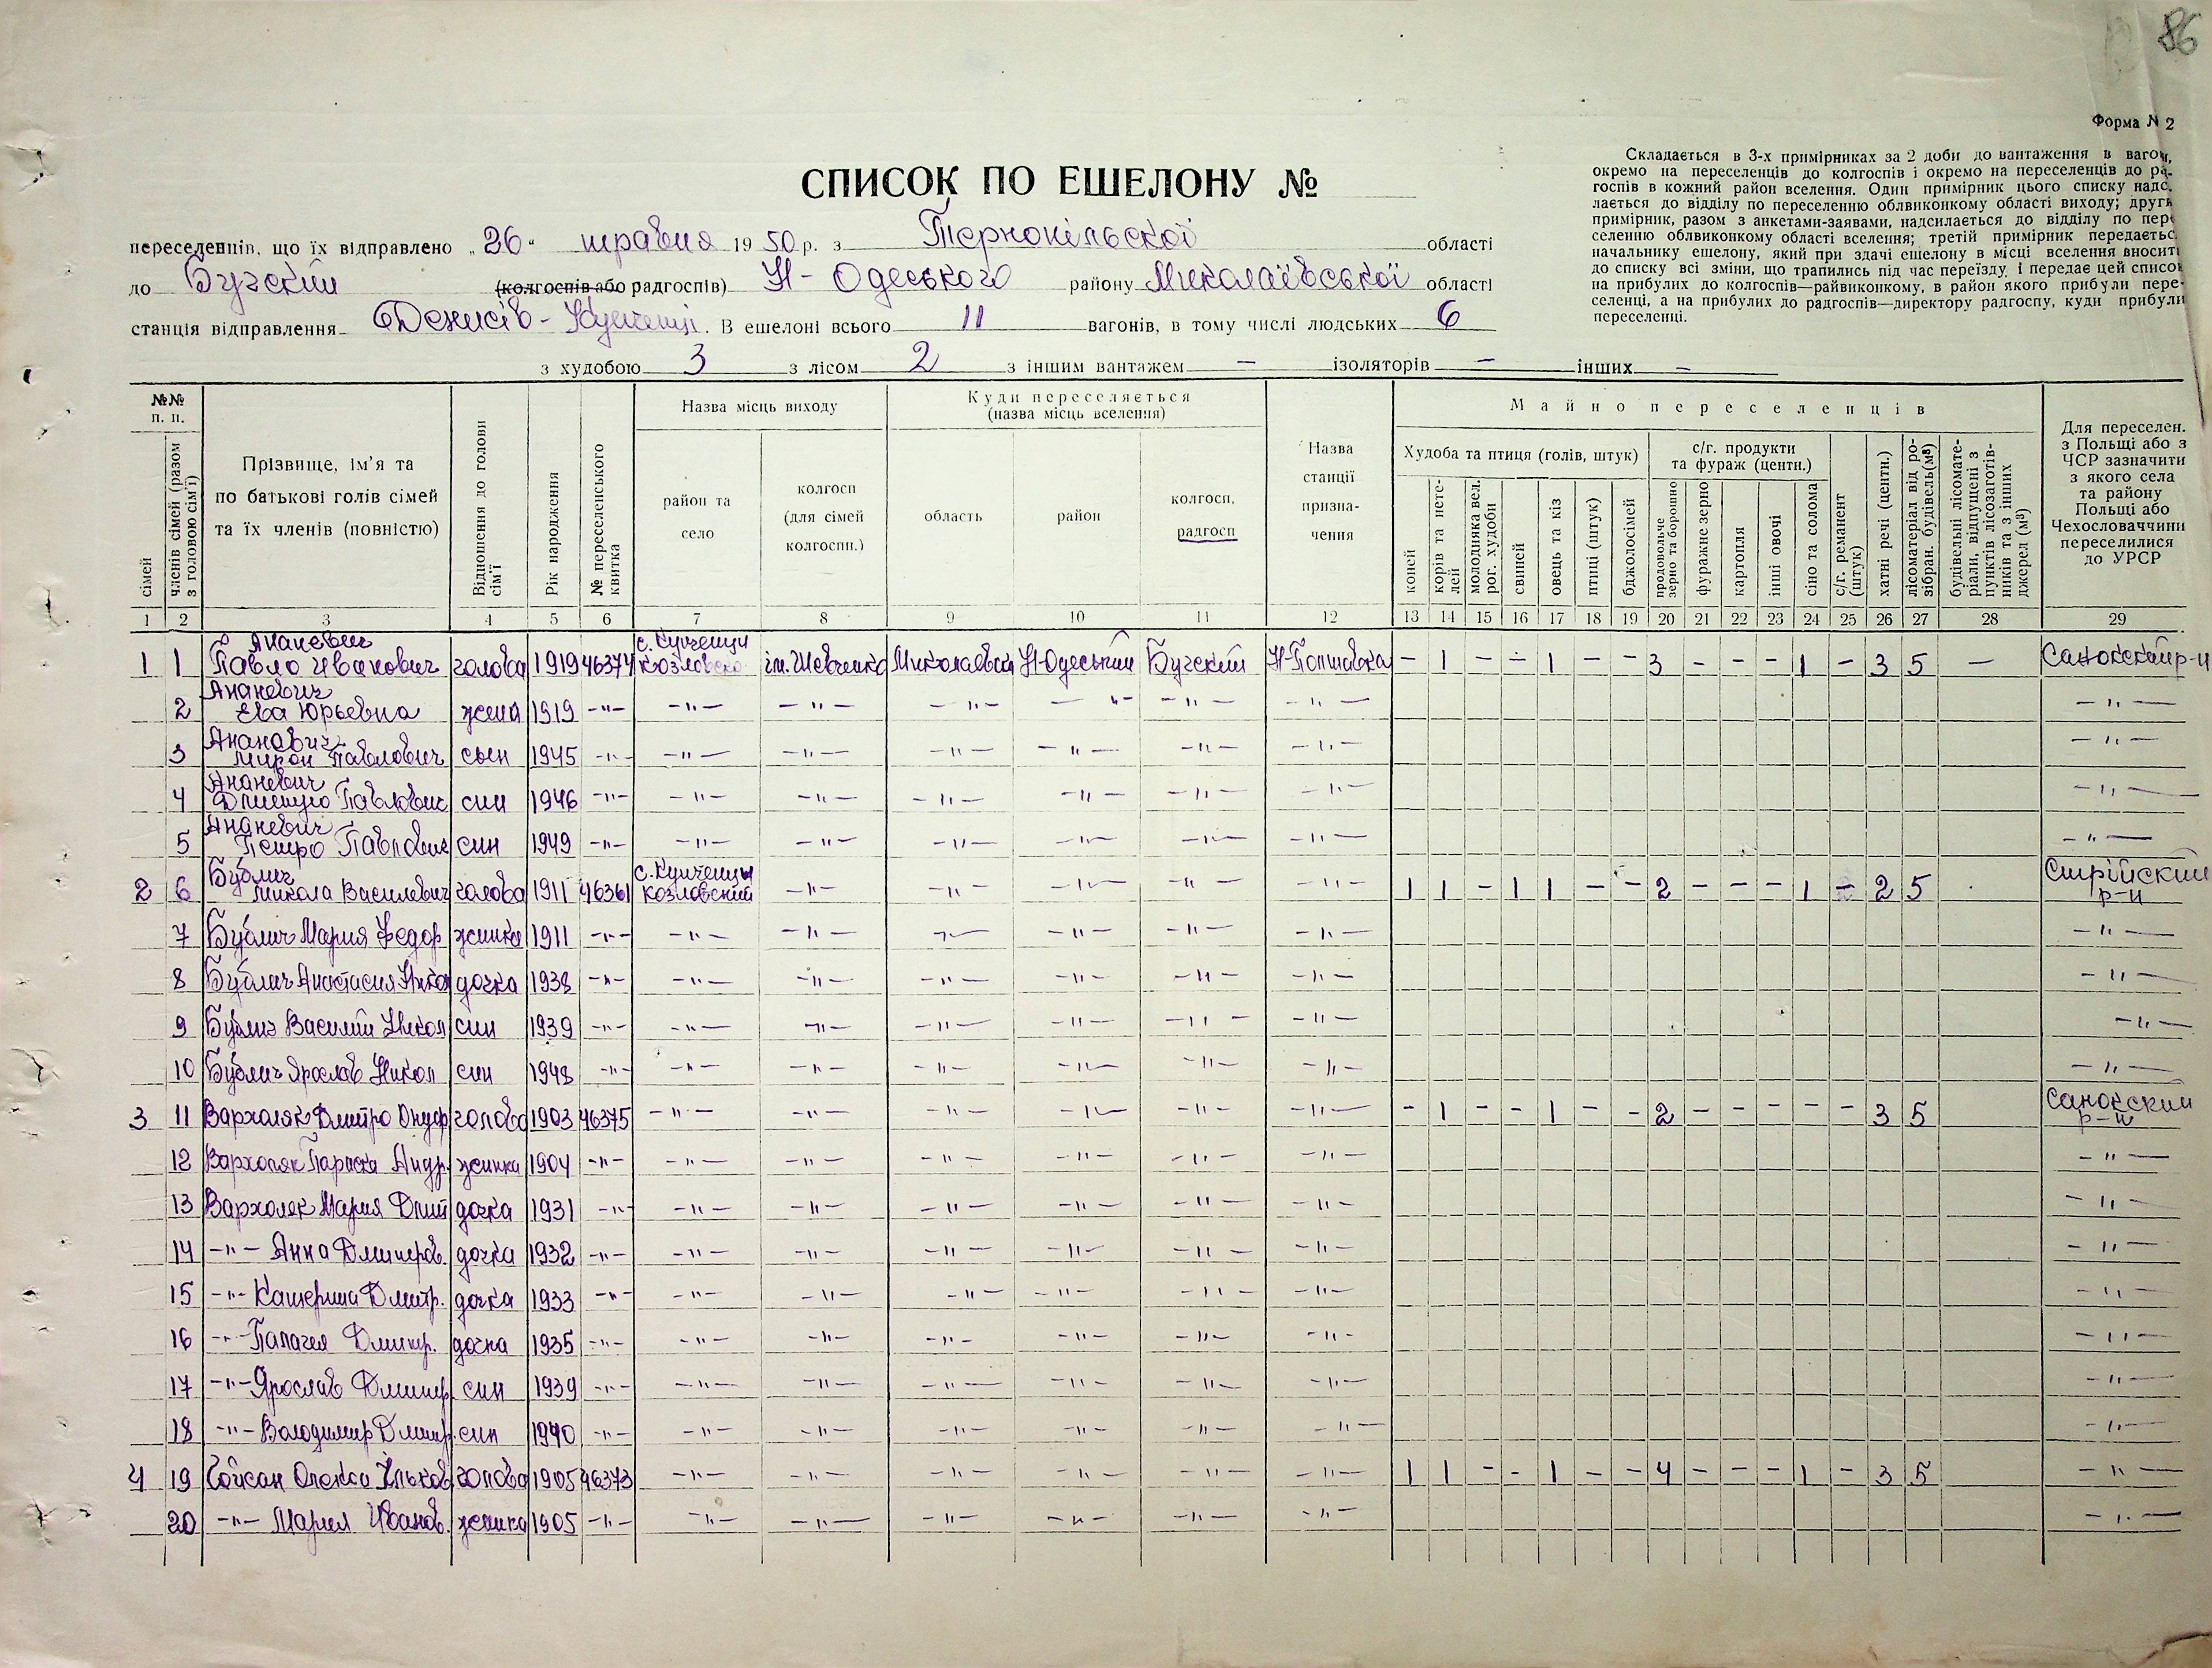 86
Форма № 2
СПИСОК ПО ЕШЕЛОНУ №
Складається в 3-х примірниках за 2 доби до вантаження в вагон,
окремо на переселенців до колгоспів і окремо на переселенців до ра-
госпів в кожний район вселення. Один примірник цього списку надс.
лається до відділу по переселенню облвиконкому області виходу; други
примірник, разом з анкетами-заявами, надсилається до відділу по пере
селенню облвиконкому області вселення; третій примірник передаєтьс.
начальнику ешелону, який при здачі ешелону в місці вселення вносить
до списку всі зміни, що трапились під час переїзду і передає цей список
на прибулих до колгоспів—райвиконкому, в район якого прибули пере-
селенці, а на прибулих до радгоспів—директору радгоспу, куди прибули
переселенці.
переселенців, що їх відправлено „26“ травня 1950 р. з Тернопільскої області
до Бугский (колгоспів або радгоспів) Н-Одеського району Миколаївської області
станція відправлення Денисів-Купченці. В ешелоні всього 11 вагонів, в тому числі людських 6
з худобою 3 з лісом 2 з іншим вантажем — ізоляторів — інших —
№№ п. п.
сімей
членів сімей (разом з головою сім'ї)
Прізвище, ім'я та
по батькові голів сімей
та їх членів (повністю)
Відношення до голови сім'ї
Рік народження
№ переселенського квитка
Назва місць виходу
район та село
колгосп (для сімей колгоспн.)
Куди переселяється
(назва місць вселення)
область
район
колгосп, радгосп
Назва станції призна-чення
Майно переселенців
Худоба та птиця (голів, штук)
коней
корів та нете-лей
молодняка вел. рог. худоби
свиней
овець та кіз
птиці (штук)
бджолосімей
с/г. продукти та фураж (центн.)
продовольче зерно та борошно
фуражне зерно
картопля
інші овочі
сіно та солома
с/г. реманент (штук)
хатні речі (центн.)
лісоматеріал від ро-зібран. будівель (м³)
будівельні лісомате-ріали, відпущені з пунктів лісозаготів-ників та з інших джерел (м³)
Для переселен. з Польщі або з ЧСР зазначити з якого села та району Польщі або Чехословаччини переселилися до УРСР
1 2 3 4 5 6 7 8 9 10 11 12 13 14 15 16 17 18 19 20 21 22 23 24 25 26 27 28 29
1 1 Ананевич Павло Иванович голова 1919 46374 с. Купченци Козловско им. Шевченка Миколаевскй Н-Одеський Бугский Н-Полтавка — 1 — — 1 — — 3 — — — 1 — 3 5 — Санокский р-н
2 Ананевич Ева Юрьевна жена 1919 —"— —"— —"— —"— —"— —"— —"— —"—
3 Ананевич Мирон Павлович сын 1945 —"— —"— —"— —"— —"— —"— —"— —"—
4 Ананевич Дмитро Павлович син 1946 —"— —"— —"— —"— —"— —"— —"— —"—
5 Ананевич Петро Павлович син 1949 —"— —"— —"— —"— —"— —"— —"— —"—
2 6 Бублич Микола Василевич голова 1911 46361 с. Купченцы Козловский —"— —"— —"— —"— —"— 1 1 — 1 1 — — 2 — — — 1 — 2 5 Стрійский р-н
7 Бублич Мария Федор жинка 1911 —"— —"— —"— —"— —"— —"— —"— —"—
8 Бублич Анастасия Никол дочка 1938 —"— —"— —"— —"— —"— —"— —"— —"—
9 Бублич Василий Никол син 1939 —"— —"— —"— —"— —"— —"— —"— —"—
10 Бублич Ярослав Никол син 1948 —"— —"— —"— —"— —"— —"— —"— —"—
3 11 Вархоляк Дмитро Онуф голова 1903 46375 —"— —"— —"— —"— —"— —"— — 1 — — 1 — — 2 — — — — — 3 5 Санокский р-н
12 Вархоляк Параска Андр. жинка 1904 —"— —"— —"— —"— —"— —"— —"— —"—
13 Вархоляк Мария Дмит дочка 1931 —"— —"— —"— —"— —"— —"— —"— —"—
14 —"— Анна Дмитров. дочка 1932 —"— —"— —"— —"— —"— —"— —"— —"—
15 —"— Катерина Дмитр. дочка 1933 —"— —"— —"— —"— —"— —"— —"— —"—
16 —"— Палагея Дмитр. дочка 1935 —"— —"— —"— —"— —"— —"— —"— —"—
17 —"— Ярослав Дмитр син 1939 —"— —"— —"— —"— —"— —"— —"— —"—
18 —"— Володимир Дмитр. син 1940 —"— —"— —"— —"— —"— —"— —"— —"—
4 19 Гойсан Олекса Ильков голова 1905 46373 —"— —"— —"— —"— —"— —"— 1 1 — — 1 — — 4 — — — 1 — 3 5 —"—
20 —"— Мария Иванов. жинка 1905 —"— —"— —"— —"— —"— —"— —"— —"—